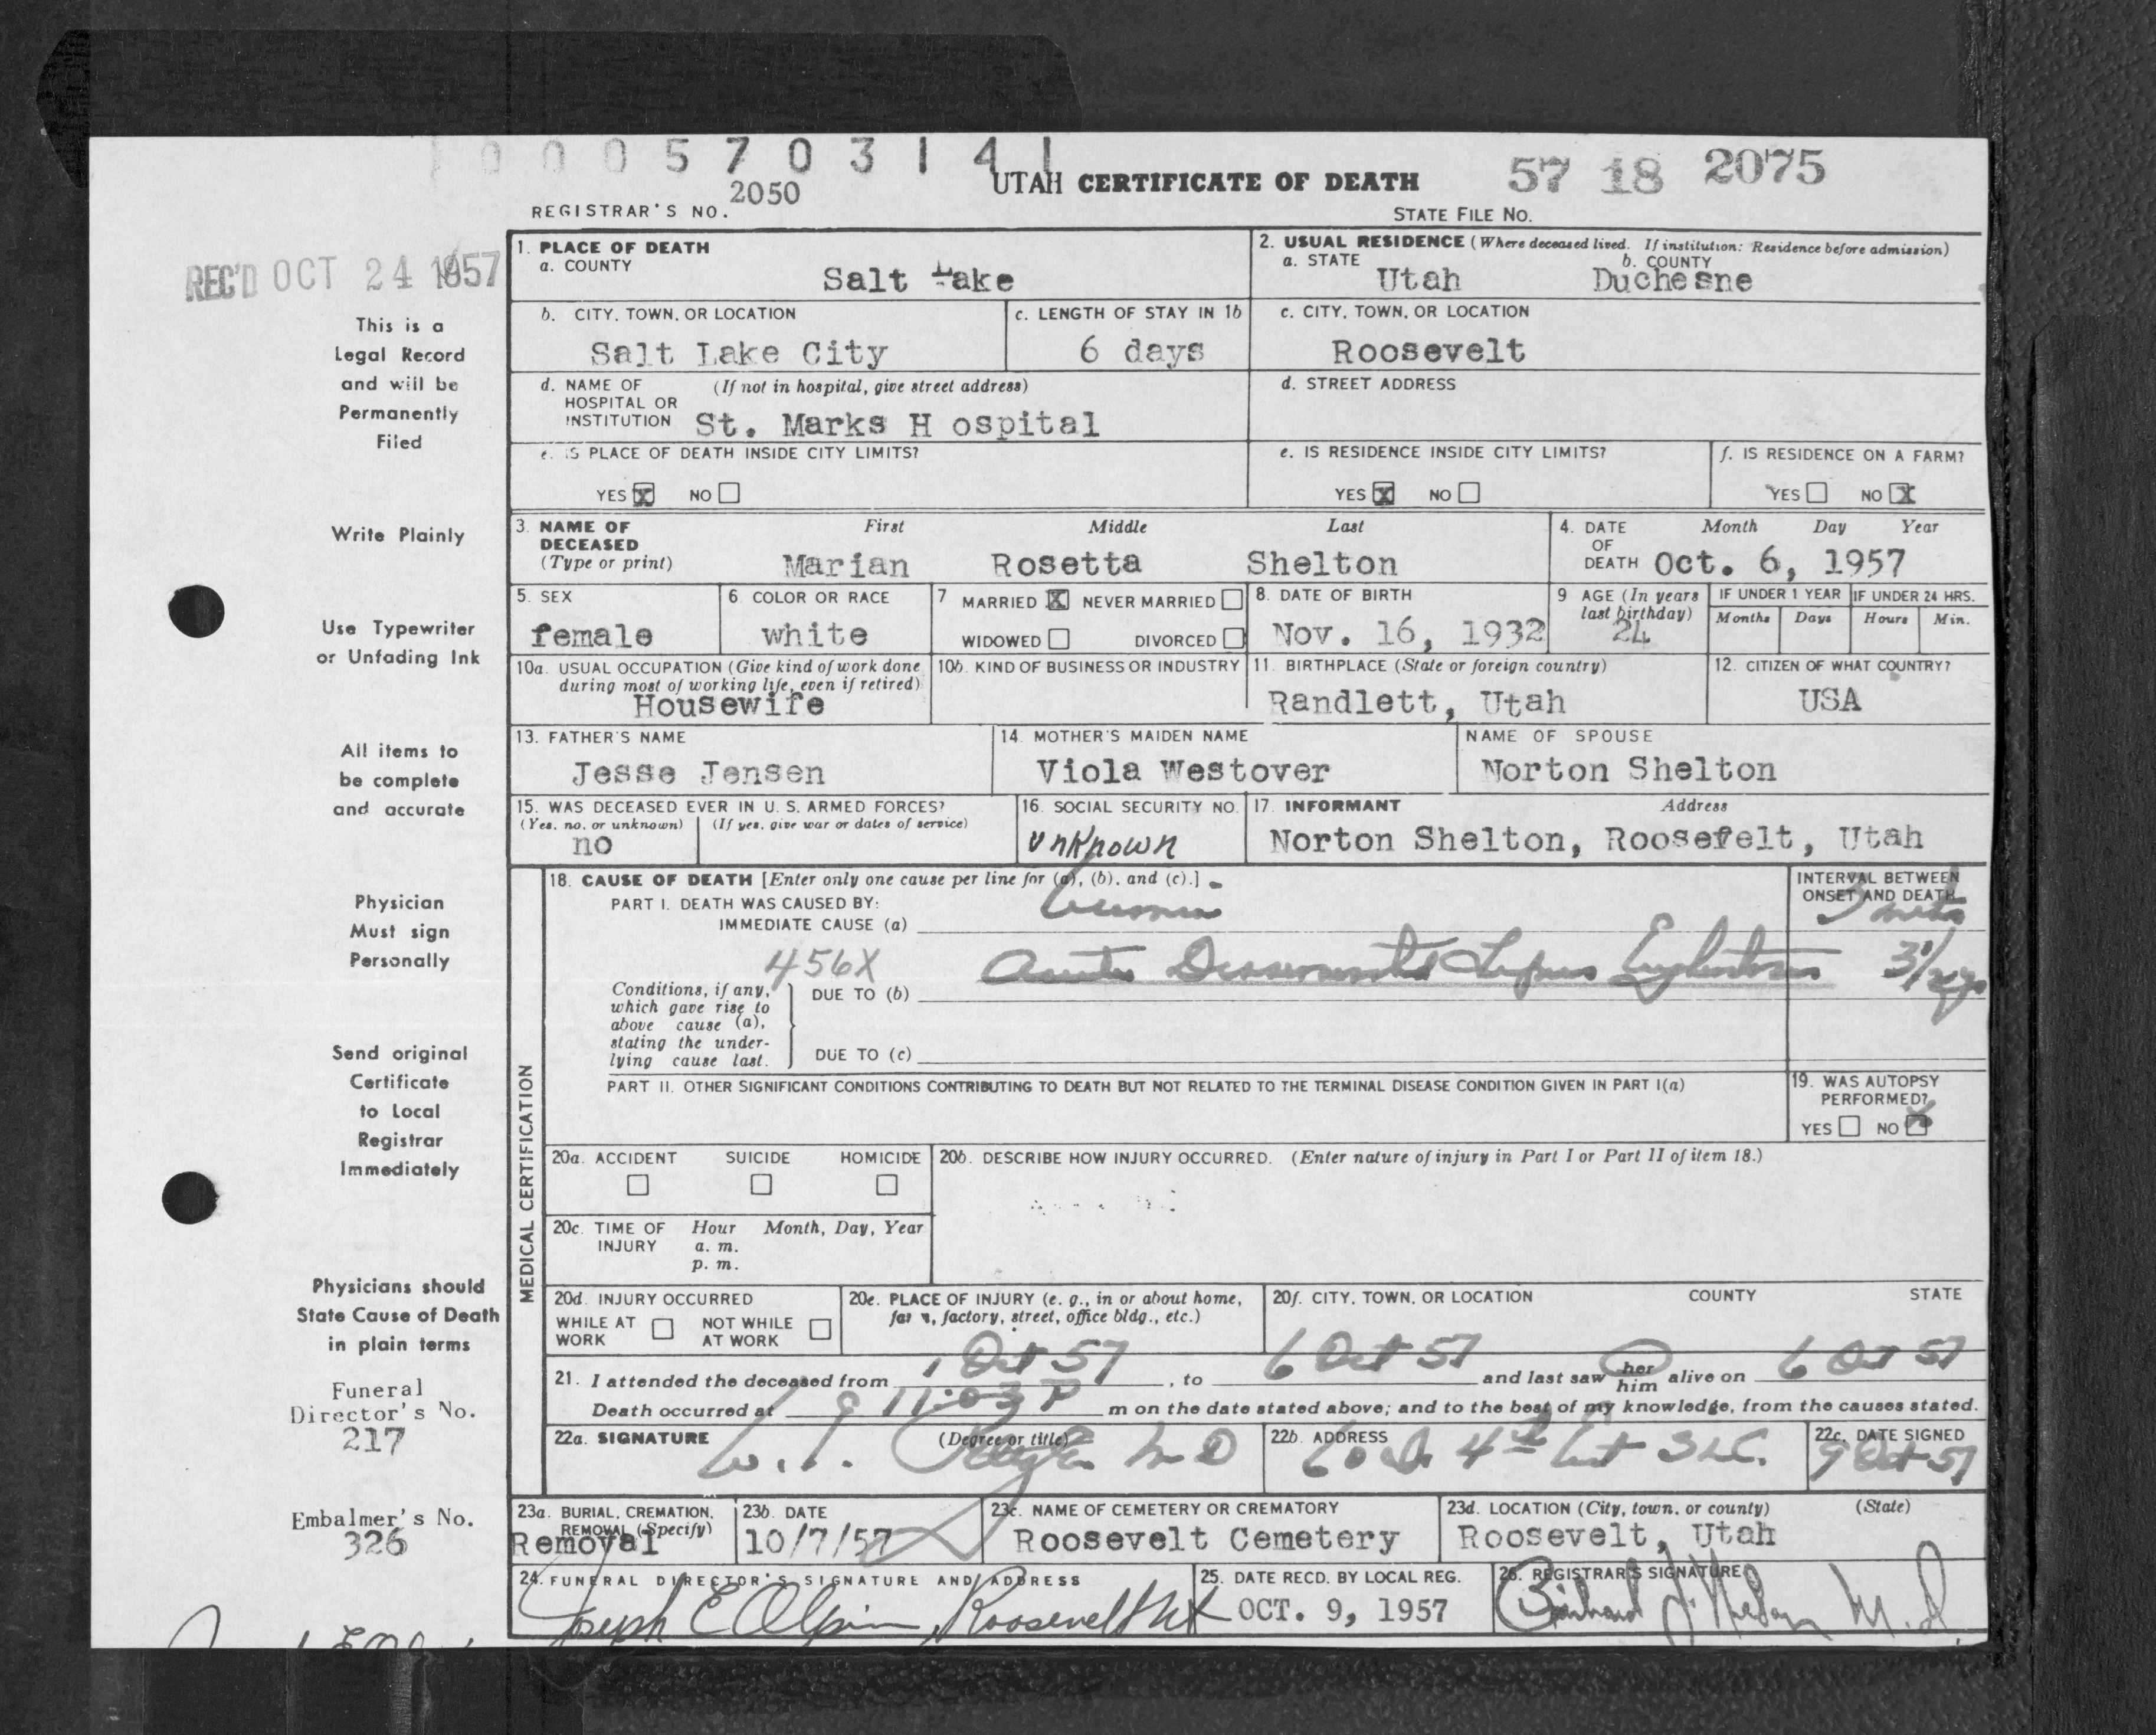 1 0 0 0 5 7 0 3 1 4 1
2050 UTAH CERTIFICATE OF DEATH 57 18 2075
REGISTRAR'S NO. STATE FILE NO.
REC'D OCT 24 1957
This is a
Legal Record
and will be
Permanently
Filed
Write Plainly
Use Typewriter
or Unfading Ink
All items to
be complete
and accurate
Physician
Must sign
Personally
Send original
Certificate
to Local
Registrar
Immediately
Physicians should
State Cause of Death
in plain terms
Funeral
Director's No.
217
Embalmer's No.
326
1. PLACE OF DEATH
a. COUNTY
Salt Lake
2. USUAL RESIDENCE (Where deceased lived. If institution: Residence before admission)
a. STATE b. COUNTY
Utah Duchesne
b. CITY, TOWN, OR LOCATION
Salt Lake City
c. LENGTH OF STAY IN 1b
6 days
c. CITY, TOWN, OR LOCATION
Roosevelt
d. NAME OF (If not in hospital, give street address)
HOSPITAL OR
INSTITUTION St. Marks H ospital
d. STREET ADDRESS
e. IS PLACE OF DEATH INSIDE CITY LIMITS?
YES X NO
e. IS RESIDENCE INSIDE CITY LIMITS?
YES X NO
f. IS RESIDENCE ON A FARM?
YES NO X
3. NAME OF First Middle Last
DECEASED
(Type or print) Marian Rosetta Shelton
4. DATE Month Day Year
OF
DEATH Oct. 6, 1957
5. SEX
female
6. COLOR OR RACE
white
7 MARRIED X NEVER MARRIED
WIDOWED DIVORCED
8. DATE OF BIRTH
Nov. 16, 1932
9 AGE (In years
last birthday)
24
IF UNDER 1 YEAR IF UNDER 24 HRS.
Months Days Hours Min.
10a. USUAL OCCUPATION (Give kind of work done
during most of working life, even if retired)
Housewife
10b. KIND OF BUSINESS OR INDUSTRY
11. BIRTHPLACE (State or foreign country)
Randlett, Utah
12. CITIZEN OF WHAT COUNTRY?
USA
13. FATHER'S NAME
Jesse Jensen
14. MOTHER'S MAIDEN NAME
Viola Westover
NAME OF SPOUSE
Norton Shelton
15. WAS DECEASED EVER IN U. S. ARMED FORCES?
(Yes, no, or unknown) (If yes, give war or dates of service)
no
16. SOCIAL SECURITY NO.
unknown
17. INFORMANT Address
Norton Shelton, Roosefelt, Utah
MEDICAL CERTIFICATION
18. CAUSE OF DEATH [Enter only one cause per line for (a), (b), and (c).]
PART I. DEATH WAS CAUSED BY:
IMMEDIATE CAUSE (a)
INTERVAL BETWEEN
ONSET AND DEATH
456X
Conditions, if any,
which gave rise to
above cause (a),
stating the under-
lying cause last.
DUE TO (b) Lupus
DUE TO (c)
PART II. OTHER SIGNIFICANT CONDITIONS CONTRIBUTING TO DEATH BUT NOT RELATED TO THE TERMINAL DISEASE CONDITION GIVEN IN PART I(a)
19. WAS AUTOPSY
PERFORMED?
YES NO X
20a. ACCIDENT SUICIDE HOMICIDE
20b. DESCRIBE HOW INJURY OCCURRED. (Enter nature of injury in Part I or Part II of item 18.)
20c. TIME OF Hour Month, Day, Year
INJURY a. m.
p. m.
20d. INJURY OCCURRED
WHILE AT WORK NOT WHILE AT WORK
20e. PLACE OF INJURY (e. g., in or about home,
farm, factory, street, office bldg., etc.)
20f. CITY, TOWN, OR LOCATION COUNTY STATE
21. I attended the deceased from 1 Oct 57, to 6 Oct 57 and last saw her him alive on 6 Oct 57
Death occurred at 11:03 P m on the date stated above; and to the best of my knowledge, from the causes stated.
22a. SIGNATURE (Degree or title)
M D
22b. ADDRESS
22c. DATE SIGNED
9 Oct 57
23a. BURIAL, CREMATION,
REMOVAL (Specify)
Removal
23b. DATE
10/7/57
23c. NAME OF CEMETERY OR CREMATORY
Roosevelt Cemetery
23d. LOCATION (City, town, or county) (State)
Roosevelt, Utah
24. FUNERAL DIRECTOR'S SIGNATURE AND ADDRESS
Joseph E Olpin, Roosevelt Ut
25. DATE RECD. BY LOCAL REG.
OCT. 9, 1957
26. REGISTRAR'S SIGNATURE
M. D